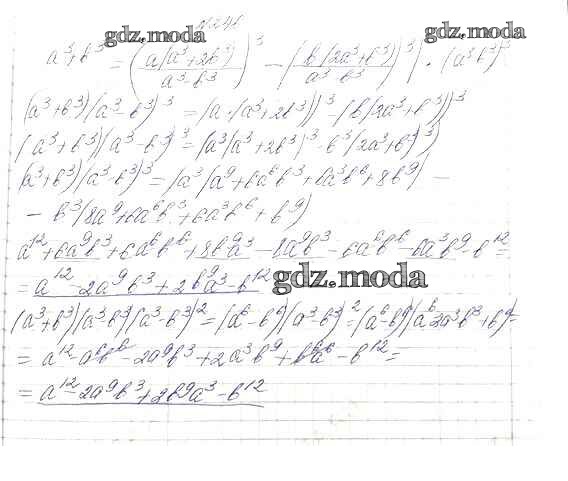 № 241
gdz.moda
gdz.moda
a³+b³ = (a(a³+2b³)/(a³-b³))³ - (b(2a³+b³)/(a³-b³))³ | · (a³-b³)³
(a³+b³)(a³-b³)³ = (a·(a³+2b³))³-(b(2a³+b³))³
(a³+b³)(a³-b³)³ = (a³(a³+2b³)³-b³(2a³+b³)³)
(a³+b³)(a³-b³)³ = (a³(a⁹+6a⁶b³+6a³b⁶+8b⁹) -
- b³(8a⁹+6a⁶b³+6a³b⁶+b⁹)
a¹²+6a⁹b³+6a⁶b⁶+8b⁹a³-8a⁹b³-6a⁶b⁶-6a³b⁹-b¹²=
= a¹²-2a⁹b³+2b⁹a³-b¹²
gdz.moda
(a³+b³)(a³-b³)(a³-b³)²=(a⁶-b⁶)(a³-b³)²=(a⁶-b⁶)(a⁶-2a³b³+b⁶)=
= a¹²-a⁶b⁶-2a⁹b³+2a³b⁹+b⁶a⁶-b¹²=
= a¹²-2a⁹b³+2b⁹a³-b¹²